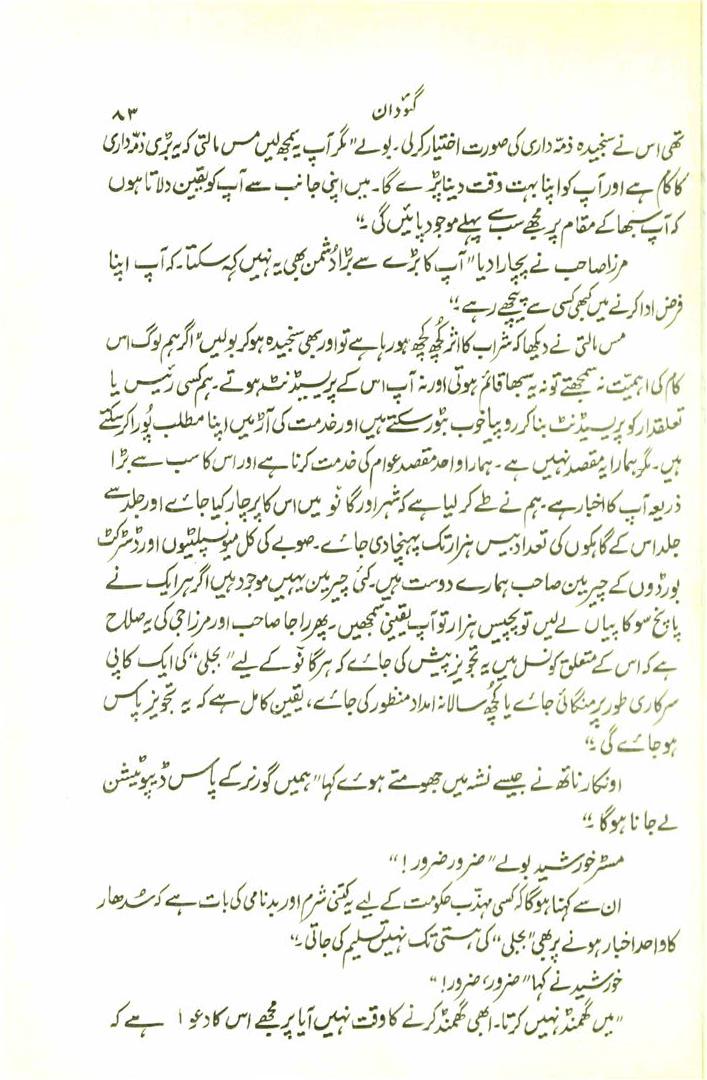 گئودان ۸۳
تھی اس نے سنجیدہ ذمّہ داری کی صورت اختیار کرلی۔ بولے ”مگر آپ یہ سمجھ لیں مس مالتی کہ یہ بڑی ذمّہ داری
کا کام ہے اور آپ کو اپنا بہت وقت دینا پڑے گا۔ میں اپنی جانب سے آپ کو یقین دلاتا ہوں
کہ آپ سبھا کے مقام پر مجھے سب سے پہلے موجود پائیں گی۔“
مرزا صاحب نے پچارا دیا ”آپ کا بڑے سے بڑا دُشمن بھی یہ نہیں کہہ سکتا۔ کہ آپ اپنا
فرض ادا کرنے میں کبھی کسی سے پیچھے رہے۔“
مس مالتی نے دیکھا کہ شراب کا اثر کُچھ کُچھ ہو رہا ہے تو اور بھی سنجیدہ ہو کر بولیں ”اگر ہم لوگ اس
کام کی اہمیّت نہ سمجھتے تو نہ یہ سبھا قائم ہوتی اور نہ آپ اس کے پریسیڈنٹ ہوتے۔ ہم کسی رئیس یا
تعلقدار کو پریسیڈنٹ بنا کر روپیا خوب بٹور سکتے ہیں اور خدمت کی آڑ میں اپنا مطلب پُورا کر سکتے
ہیں۔ مگر ہمارا یہ مقصد نہیں ہے۔ ہمارا واحد مقصد عوام کی خدمت کرنا ہے اور اس کا سب سے بڑا
ذریعہ آپ کا اخبار ہے۔ ہم نے طے کر لیا ہے کہ شہر اور گانو میں اس کا پرچار کیا جائے اور جلد سے
جلد اس کے گاہکوں کی تعداد بیس ہزار تک پہنچا دی جائے۔ صوبے کی کل میونسپلٹیوں اور ڈسٹرکٹ
بورڈوں کے چیرمین صاحب ہمارے دوست ہیں۔ کئی چیرمین یہیں موجود ہیں اگر ہر ایک نے
پانچ سو کاپیاں لے لیں تو پچیس ہزار تو آپ یقینی سمجھیں۔ پھر راجا صاحب اور مرزا جی کی یہ صلاح
ہے کہ اس کے متعلق کونسل میں یہ تجویز پیش کی جائے کہ ہر گانو کے لیے ”بجلی“ کی ایک کاپی
سرکاری طور پر منگائی جائے یا کُچھ سالانہ امداد منظور کی جائے، یقین کامل ہے کہ یہ تجویز پاس
ہو جائے گی۔“
اونکار ناتھ نے جیسے نشہ میں جھومتے ہوئے کہا ”ہمیں گورنر کے پاس ڈیپوٹیشن
لے جانا ہوگا۔“
مسٹر خورشید بولے ”ضرور ضرور!“
ان سے کہنا ہوگا کہ کسی مہذّب حکومت کے لیے یہ کتنی شرم اور بدنامی کی بات ہے کہ سُدھار
کا واحد اخبار ہونے پر بھی ”بجلی“ کی ہستی تک نہیں تسلیم کی جاتی۔“
خورشید نے کہا ”ضرور، ضرور!“
”میں گھمنڈ نہیں کرتا۔ ابھی گھمنڈ کرنے کا وقت نہیں آیا پر مجھے اس کا دعوا ہے کہ